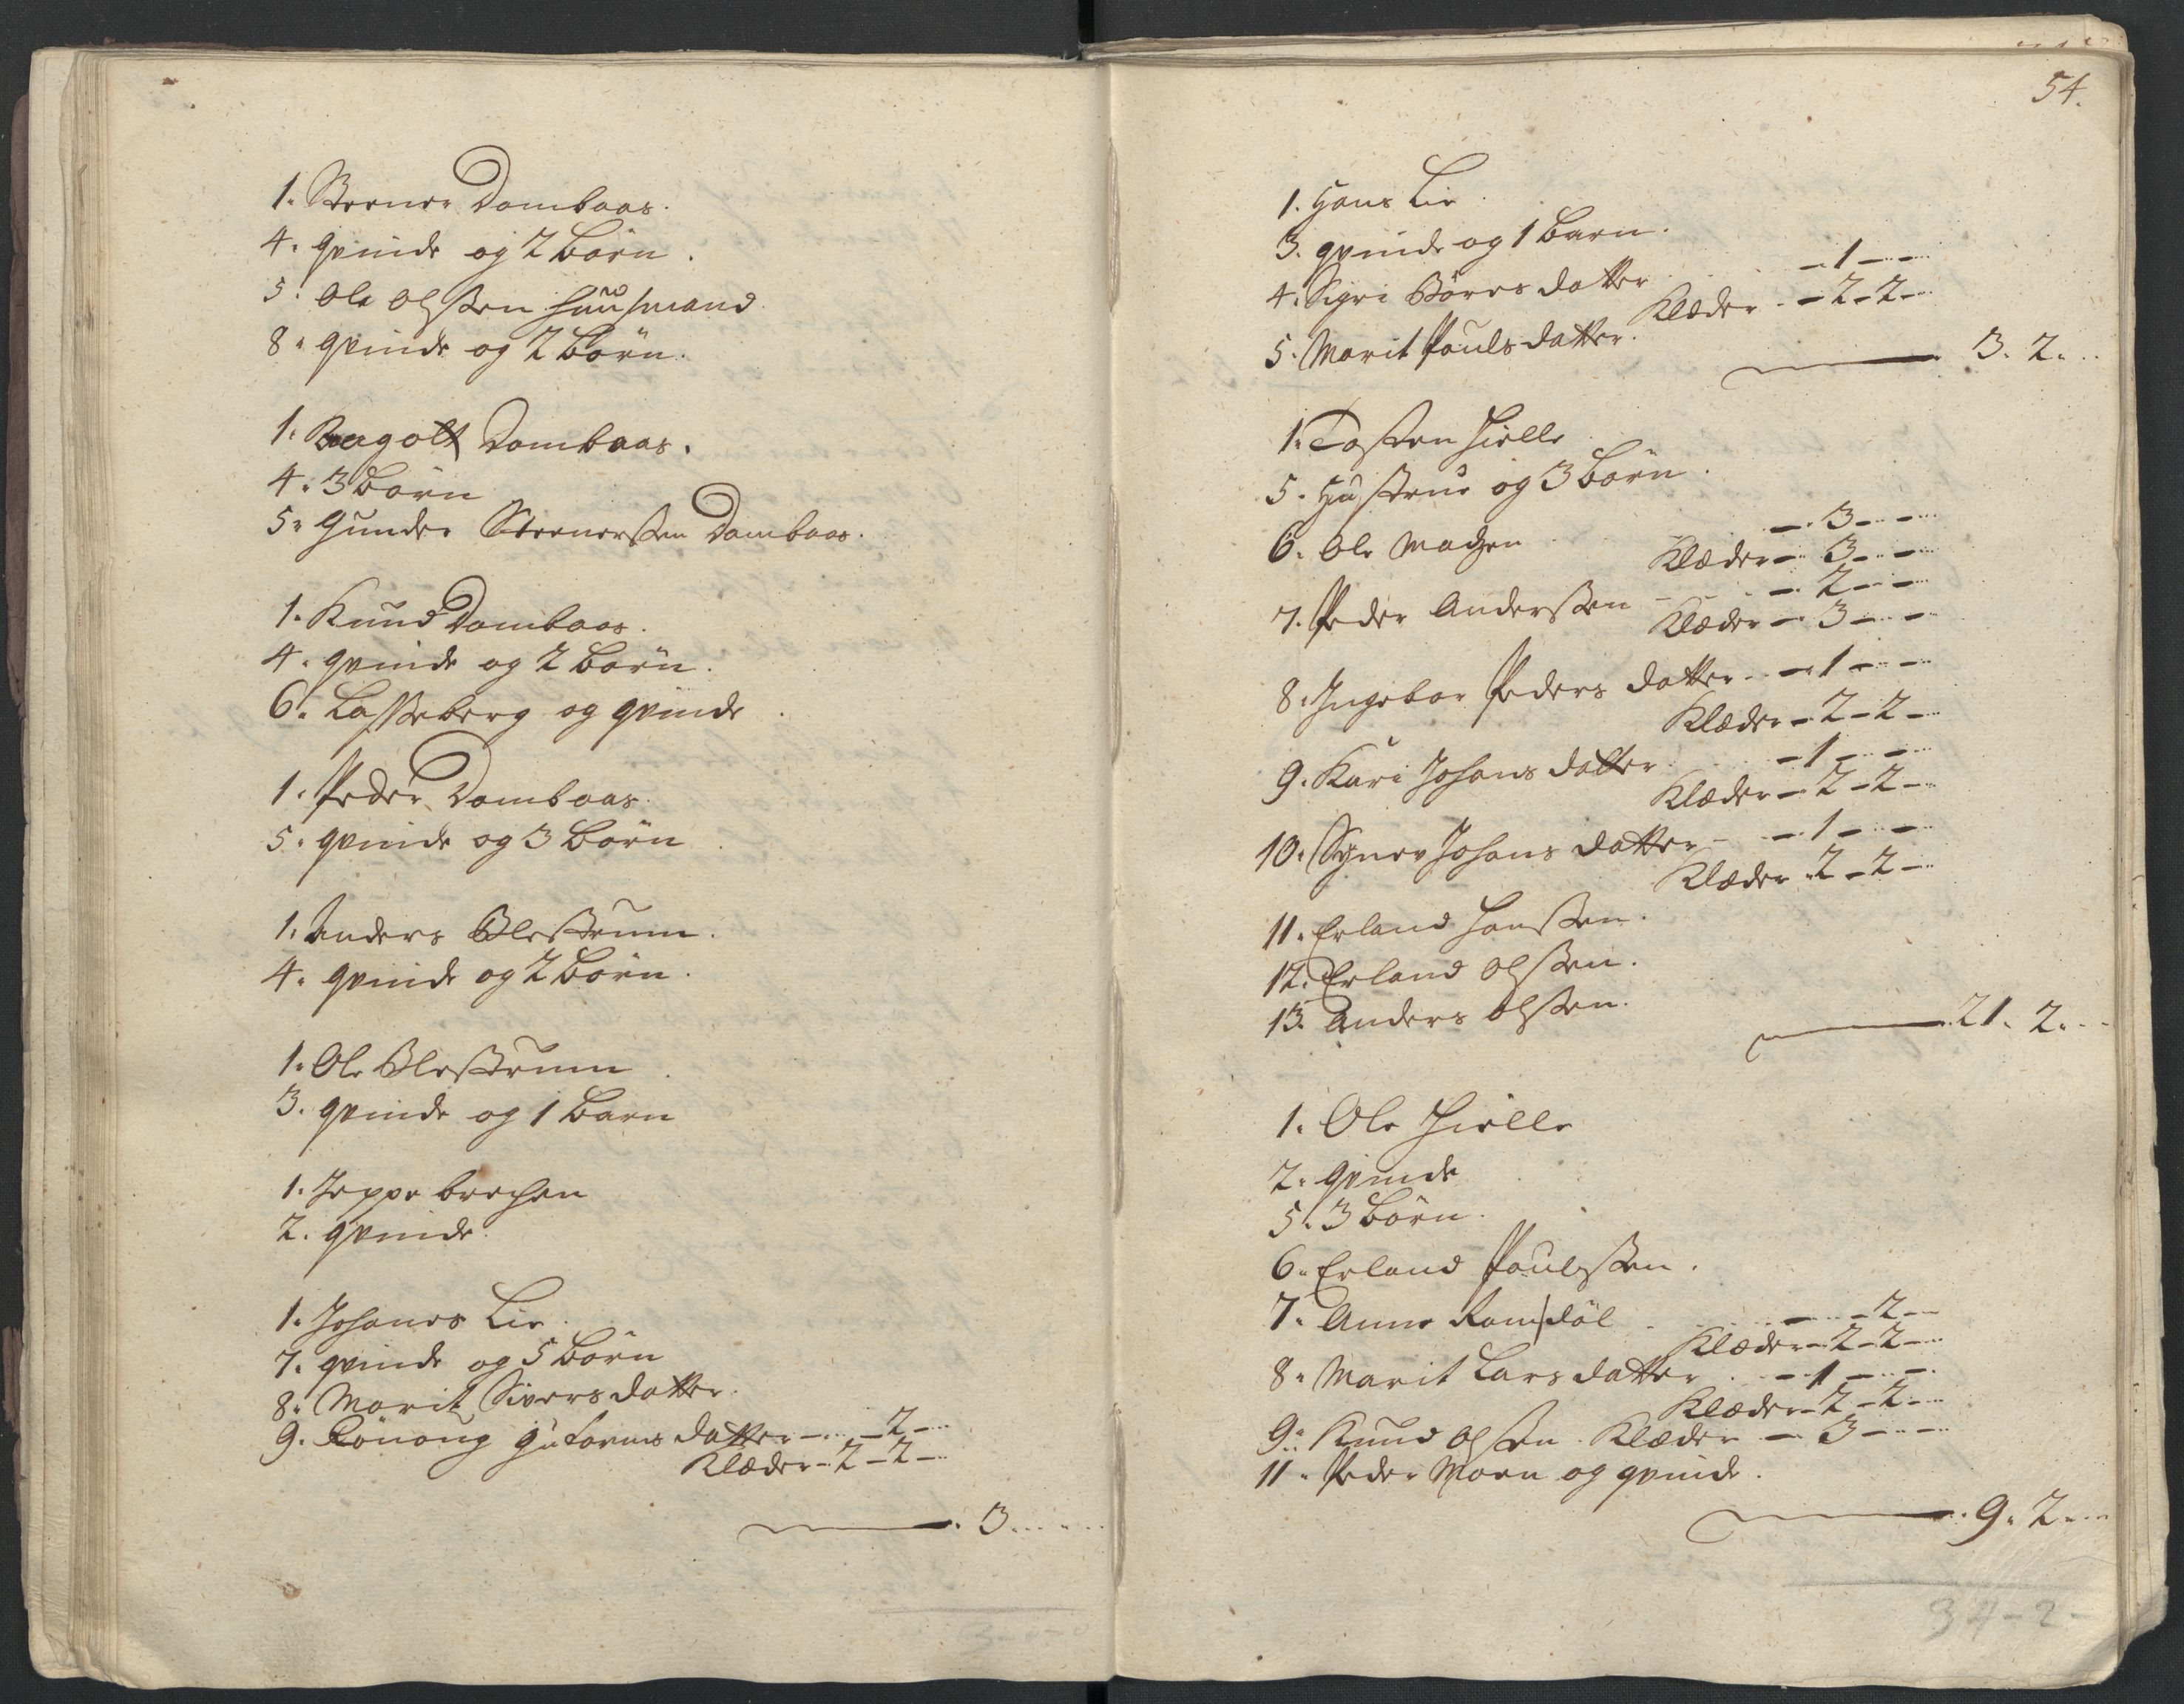 1. Steener Dombaas.
4. qvinde og 2 börn.
5. Ole Olssen huusmand
8. qvinde og 2 börn.
1. Bergolt Dombaas.
4. 3 börn
5. Gunder Steenerssen Dombaas.
1. Knud Dombaas.
4. qvinde og 2 börn.
6. Lasseberg og qvinde
1. Peder Dombaas.
5. qvinde og 3 börn
1. Anders Blestrum.
4. qvinde og 2 börn.
1. Ole Blestrum
3. qvinde og 1 barn
1. Jeppe brechen
2. qvinde.
1. Johanes Lie.
7. qvinde og 5 börn
8. Marit Sivers datter.
9. Rönoug Gutorms datter - - 2 -
Klæder - 2 - 2 -
3.
3 - - 0
54.
1. Hans Lie.
3. qvinde og 1 barn.
4. Sigri Börres datter - 1 - -
Klæder - 2 - 2 -
5. Marit Pouls datter.
3. 2.
1. Tosten Hielle
5. Hustrue og 3 börn.
6. Ole Madzen - 3 - -
Klæder - 3 - -
7. Peder Anderssen - 2 - -
Klæder - 3 - -
8. Ingebor Peders datter - 1 - -
Klæder - 2 - 2 -
9. Kari Johans datter - 1 - -
Klæder - 2 - 2 -
10. Synev Johans datter - 1 - -
Klæder 2 - 2 -
11. Erland Hanssen.
12. Erland Olssen.
13. Anders Olssen.
21. 2.
1. Ole Hielle
2. qvinde
5. 3 börn.
6. Erland Poulssen.
7. Anne Romsdöl - - 2 -
Klæder - 2 - 2 -
8. Marit Lars datter - 1 - -
Klæder - 2 - 2 -
9. Knud Olssen Klæder - 3 - -
11. Peder Moen og qvinde.
9. 2.
34 - 2 -